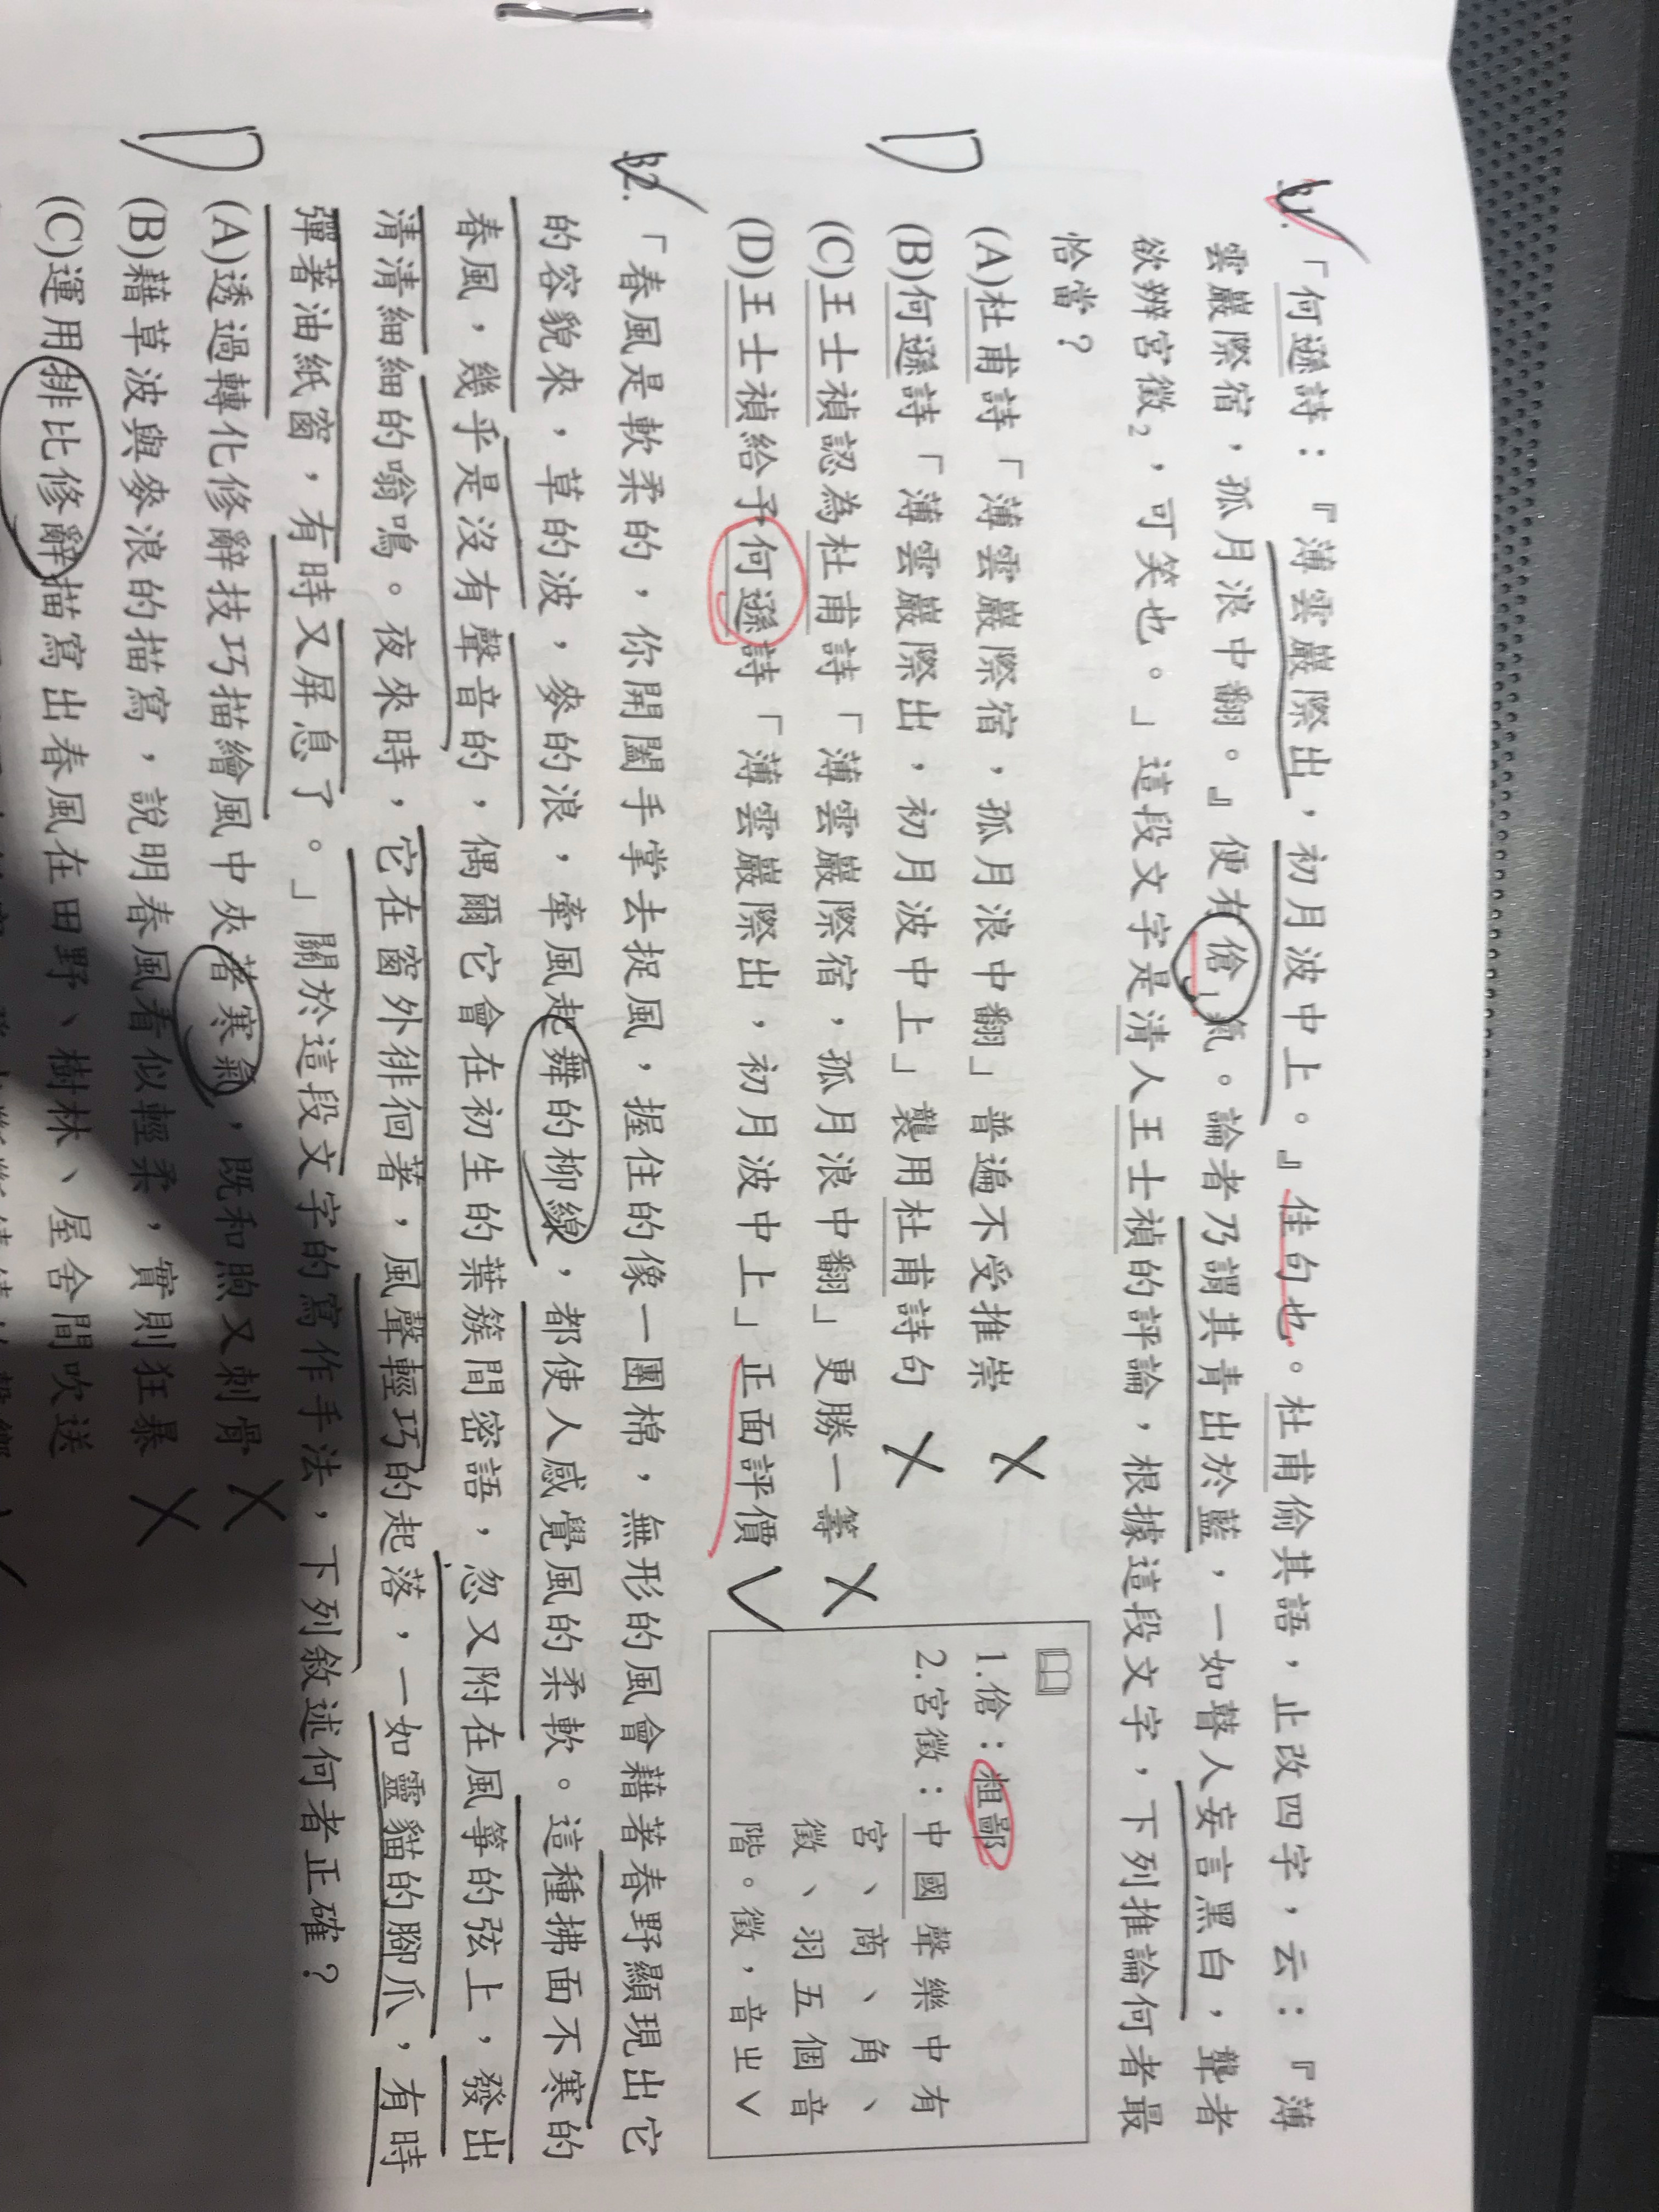 31.「何遜詩：『薄雲巖際出，初月波中上。』佳句也。杜甫偷其語，止改四字，云：『薄
雲巖際宿，孤月浪中翻。』便有傖1氣。論者乃謂其青出於藍，一如瞽人妄言黑白，聾者
欲辨宮徵2，可笑也。」這段文字是清人王士禎的評論，根據這段文字，下列推論何者最
恰當？
D
(A)杜甫詩「薄雲巖際宿，孤月浪中翻」普遍不受推崇 X
(B)何遜詩「薄雲巖際出，初月波中上」襲用杜甫詩句 X
(C)王士禎認為杜甫詩「薄雲巖際宿，孤月浪中翻」更勝一籌 X
(D)王士禎給予何遜詩「薄雲巖際出，初月波中上」正面評價 V
1.傖：粗鄙
2.宮徵：中國聲樂中有
宮、商、角、
徵、羽五個音
階。徵，音ㄓˇ
32.「春風是軟柔的，你開闔手掌去捉風，握住的像一團棉，無形的風會藉著春野顯現出它
的容貌來，草的波，麥的浪，牽風起舞的柳線，都使人感覺風的柔軟。這種拂面不寒的
春風，幾乎是沒有聲音的，偶爾它會在初生的葉簇間密語，忽又附在風箏的弦上，發出
清清細細的嗡鳴。夜來時，它在窗外徘徊著，風聲輕巧的起落，一如靈貓的腳爪，有時
彈著油紙窗，有時又屏息了。」關於這段文字的寫作手法，下列敘述何者正確？
D
(A)透過轉化修辭技巧描繪風中夾著寒氣，既和煦又刺骨 X
(B)藉草波與麥浪的描寫，說明春風看似輕柔，實則狂暴 X
(C)運用排比修辭描寫出春風在田野、樹林、屋舍間吹送